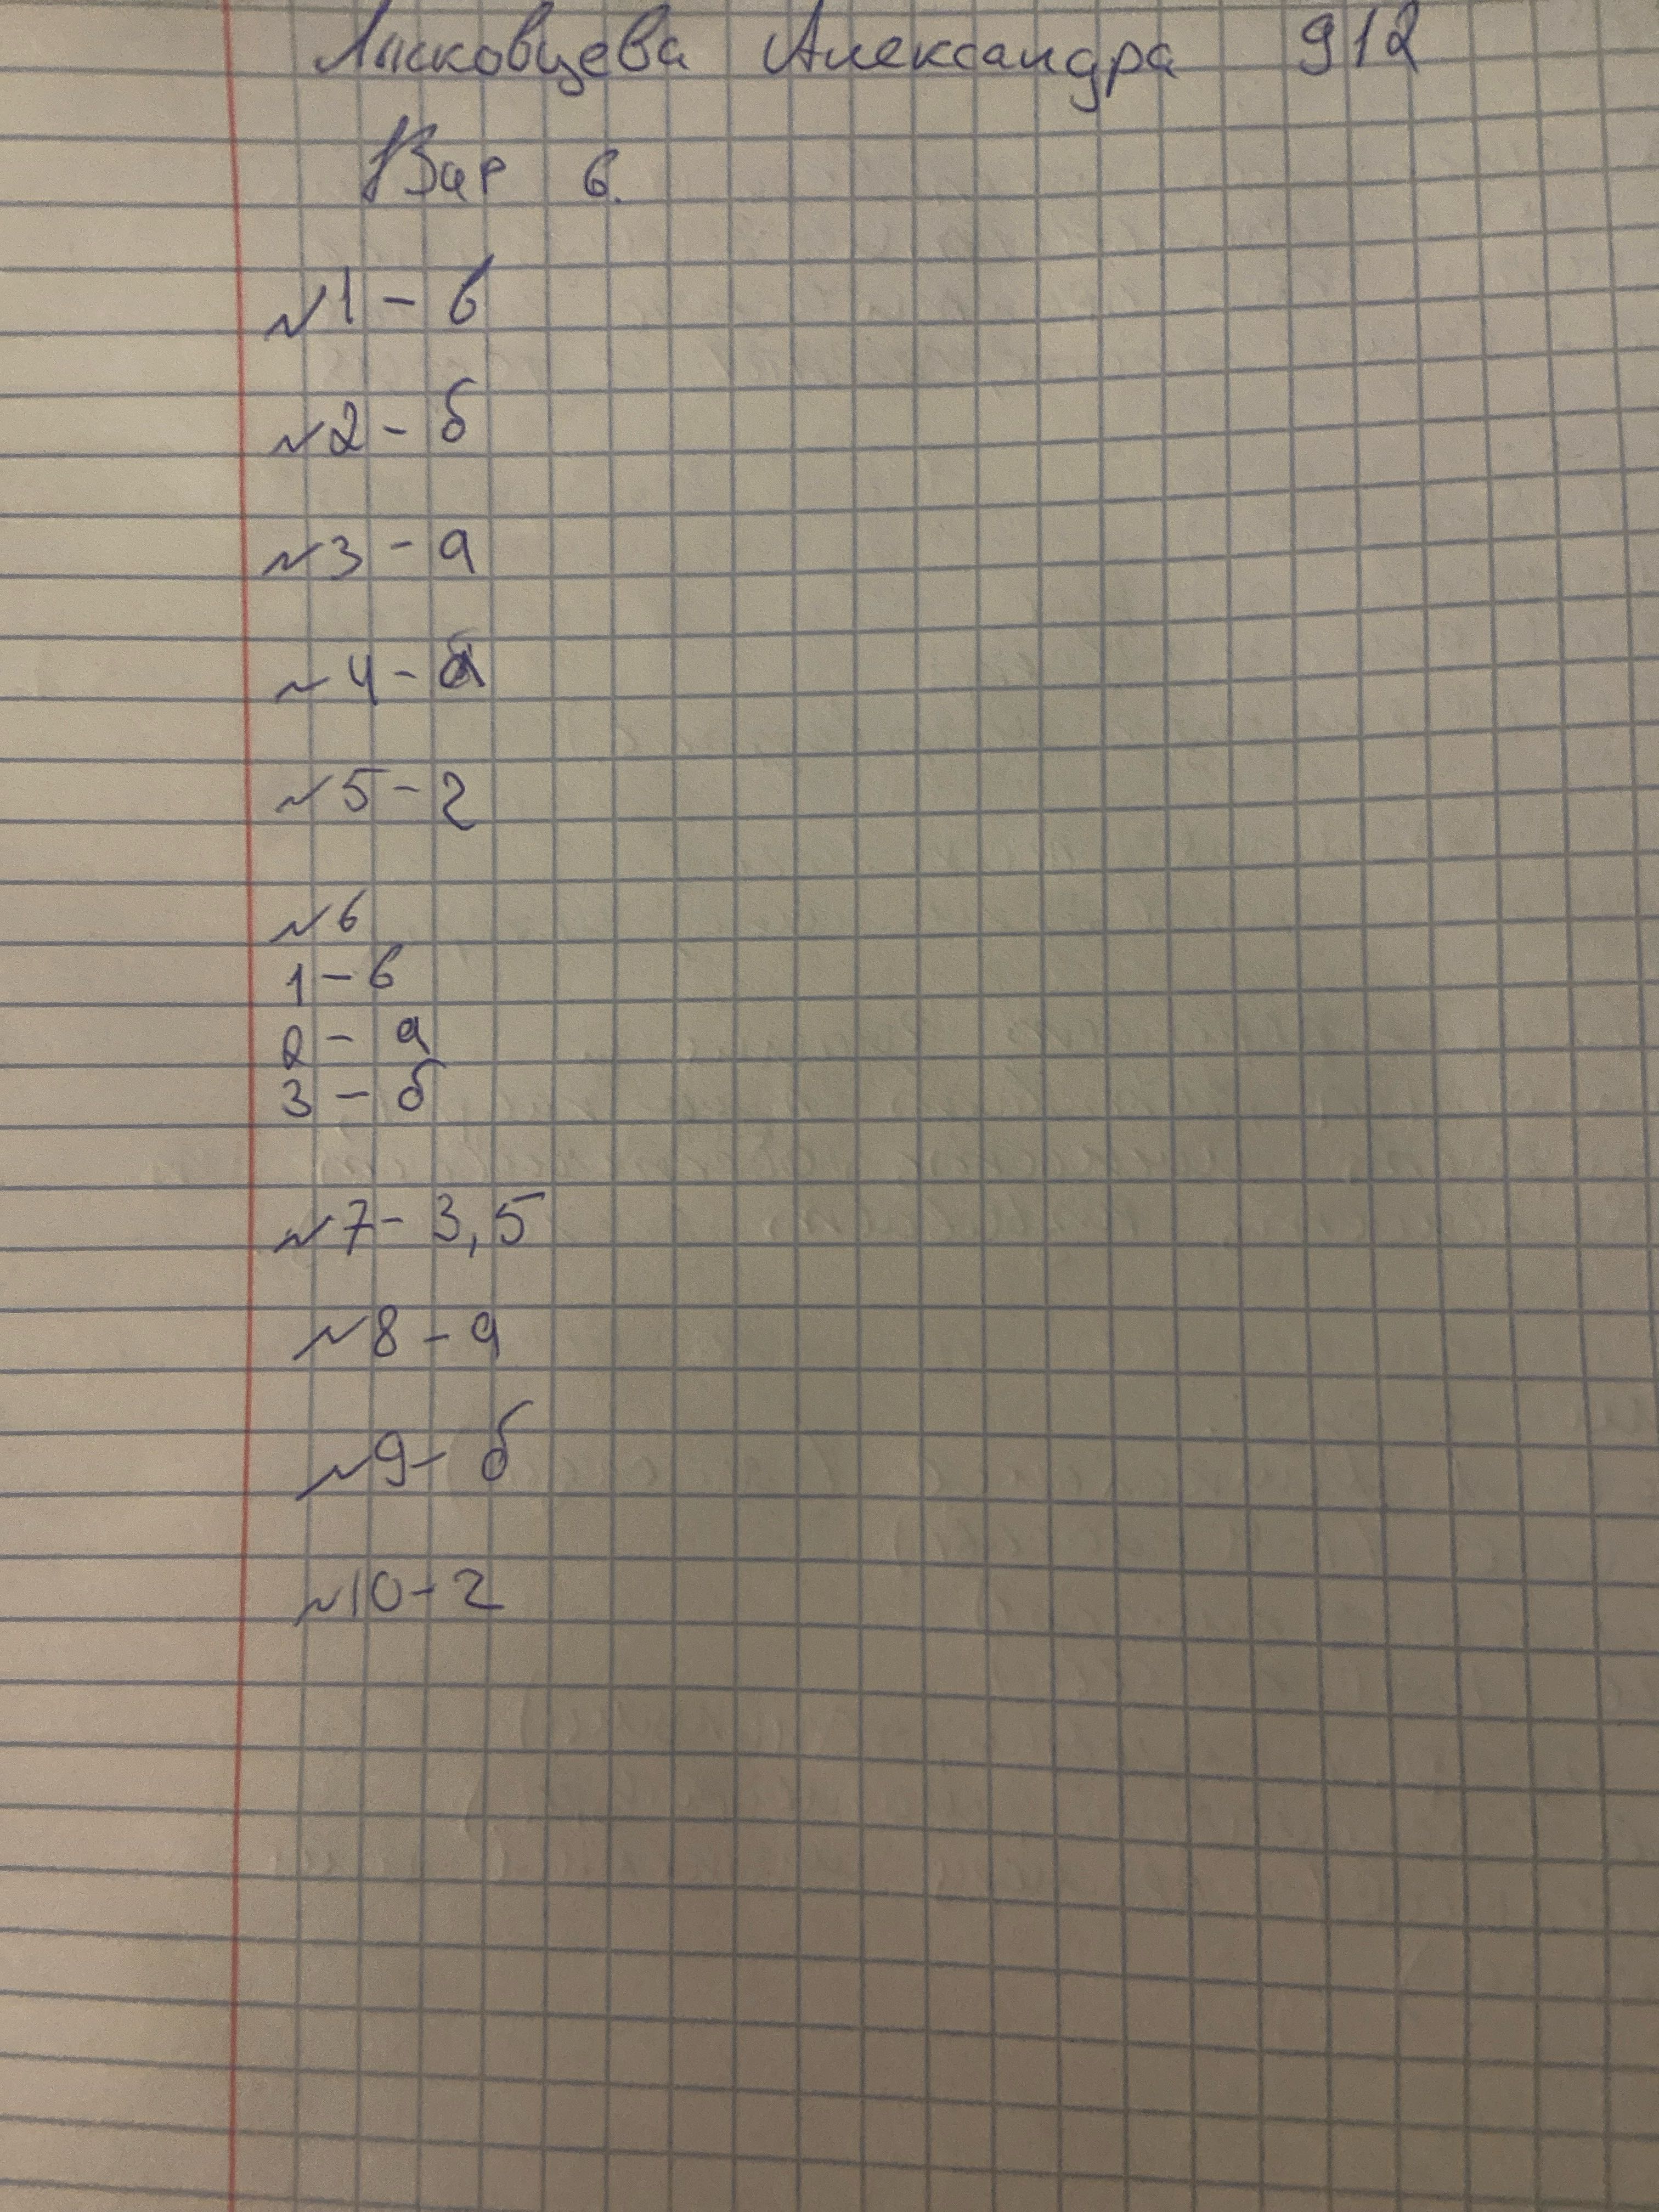 Лысковцева Александра 912
Вар 6.
№1 - в
№2 - б
№3 - а
№4 -
№5 - г
№6
1 - в
2 - а
3 - б
№7 - 3,5
№8 - а
№9 - б
№10 - 2